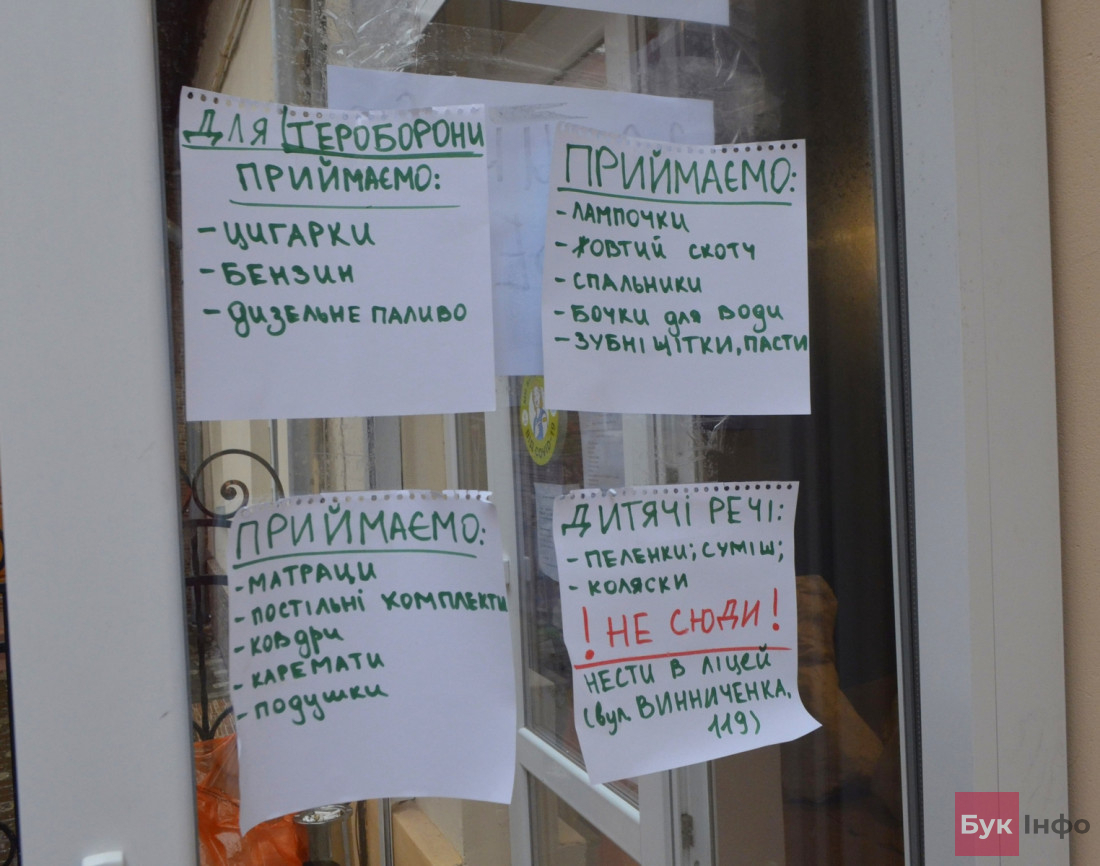 ДЛЯ ТЕРОБОРОНИ
ПРИЙМАЄМО:
- ЦИГАРКИ
- БЕНЗИН
- ДИЗЕЛЬНЕ ПАЛИВО
ПРИЙМАЄМО:
- ЛАМПОЧКИ
- ЖОВТИЙ СКОТЧ
- СПАЛЬНИКИ
- БОЧКИ ДЛЯ ВОДИ
- ЗУБНІ ЩІТКИ, ПАСТИ
ПРИЙМАЄМО:
- МАТРАЦИ
- ПОСТІЛЬНІ КОМПЛЕКТИ
- КОВДРИ
- КАРЕМАТИ
- ПОДУШКИ
ДИТЯЧІ РЕЧІ:
- ПЕЛЕНКИ; СУМІШ;
- КОЛЯСКИ
! НЕ СЮДИ !
НЕСТИ В ЛІЦЕЙ
(вул. ВИННИЧЕНКА,
119)
Бук Інфо